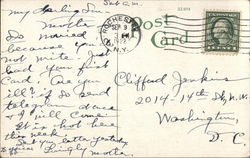 Sat. 12 m.
my Darling Son
Mother
So worried
because you
not write Just
had your first
card. Are you
ill? if so send
telegram &
I will come.
It is hot here
this week.
Sent my letter yesterday
office Lovingly mother
ROCHESTER
N.Y.
Post
Card
Clifford Jenkins
2014-14th St. N.W.
Washington,
D. C.